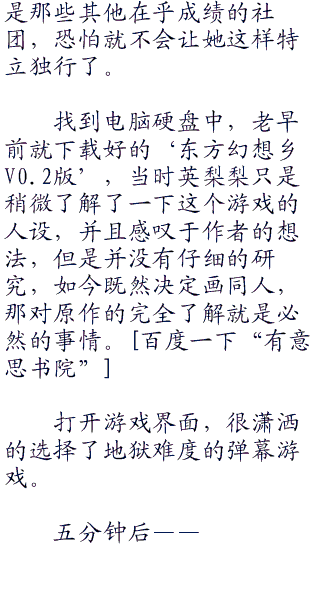 是那些其他在乎成绩的社
团，恐怕就不会让她这样特
立独行了。
找到电脑硬盘中，老早
前就下载好的‘东方幻想乡
V0.2版’，当时英梨梨只是
稍微了解了一下这个游戏的
人设，并且感叹于作者的想
法，但是并没有仔细的研
究，如今既然决定画同人，
那对原作的完全了解就是必
然的事情。[百度一下“有意
思书院”]
打开游戏界面，很潇洒
的选择了地狱难度的弹幕游
戏。
五分钟后——